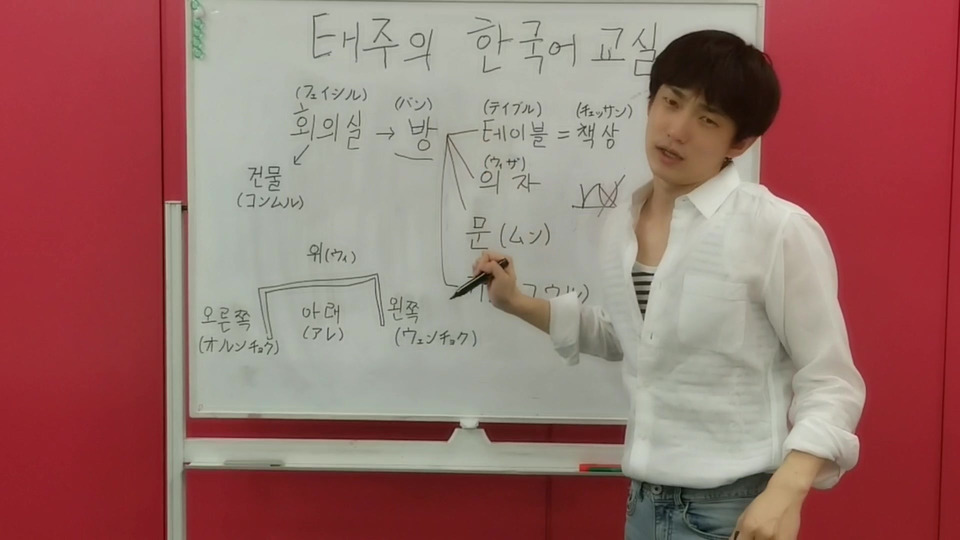 태주의 한국어 교실
(フェイシル)
회의실 → 방
(バン)
(テイブル)
테이블 = 책상
(チェッサン)
(ウィザ)
의자
건물
(コンムル)
문 (ムン)
위(ウィ)
오른쪽
(オルンチョク)
아래
(アレ)
왼쪽
(ウェンチョク)